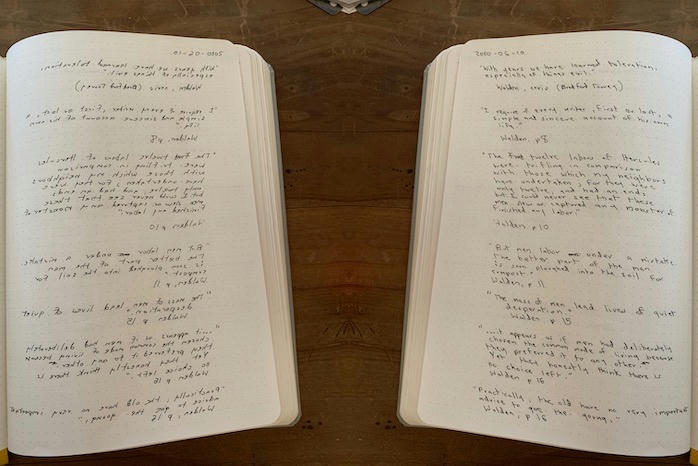 "With years we have learned toleration,
especially of
Walden, (Bradford Torrey)
"I require of every writer, first or last, a
simple and sincere account of his own
life."
Walden, p8
"The twelve labors of Hercules
were trifling in comparison
with those which my neighbors
have undertaken; for they were
only twelve, and had an end;
but I could never see that these
men slew or captured any monster or
finished any labor."
Walden, p10
"But men labor under a mistake.
The better part of the man
is soon plowed into the soil for
compost."
Walden, p 11
"The mass of men lead lives of quiet
desperation."
Walden, p 15
"...it appears as if men had deliberately
chosen the common mode of living because
they preferred it to any other.
Yet they honestly think there is
no choice left."
Walden p 16
"Practically, the old have no very important
advice to give the young,"
Walden, p 16